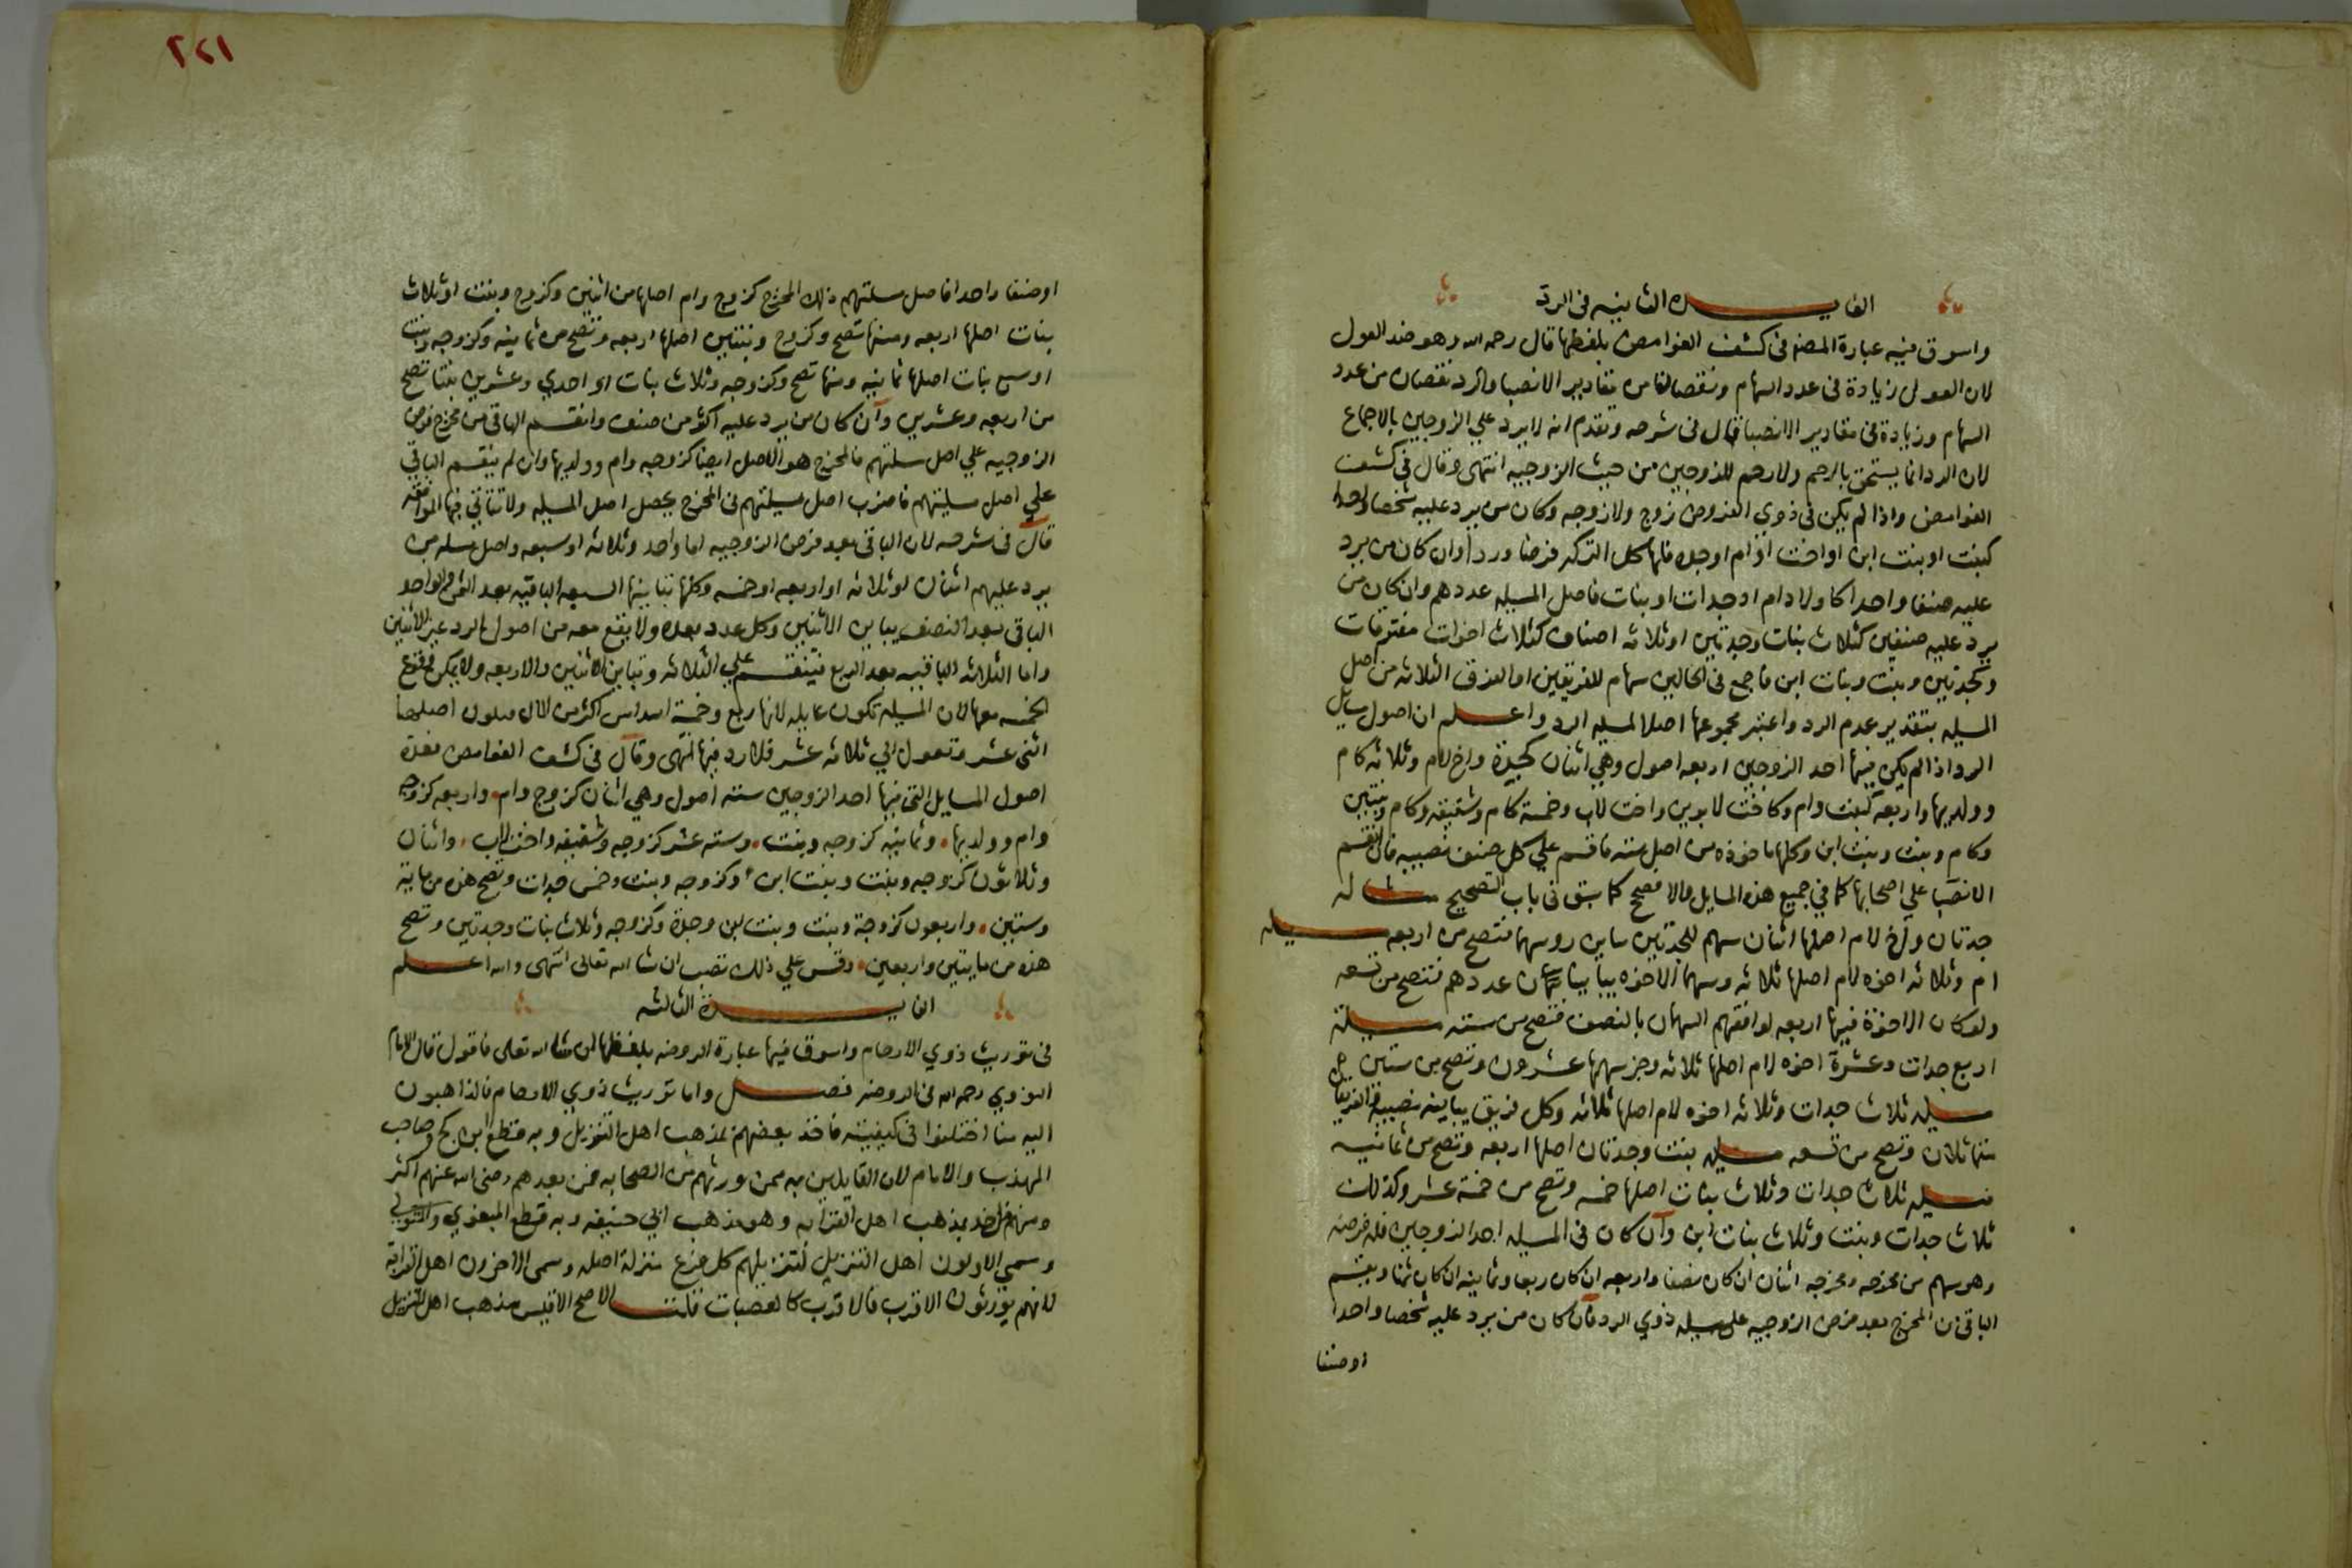 الفايده الثانيه في الرد
واسوق فيه عبارة المصنف في كشف الغوامض بلفظها قال رحمه الله وهو ضد العول
لان العول زيادة في عدد السهام ونقصانا من مقادير الانصبا والرد نقصان من عدد
السهام وزيادة في مقادير الانصبا قال في شرحه وتقدم انه لا يرد علي الزوجين بالاجماع
لان الرد انما يستحق بالرحم ولا رحم للزوجين من حيث الزوجيه انتهى وقال في كشف
الغوامض واذا لم يكن في ذوي الفروض زوج ولا زوجه وكان من يرد عليه شخصا واحدا
كبنت او بنت ابن او اخت او ام او جده فلها كل التركه فرضا وردا وان كان من يرد
عليه صنفا واحدا كاولاد ام او جدات او بنات فاصل المسيله عددهم وان كان من
يرد عليه صنفين كثلاث بنات وجدتين او ثلاثه اصناف كثلاث اخوات مفترقات
وكجدتين وبنت وبنات ابن فاجمع في الحالين سهام الفريقين او الفرق الثلاثه من اصل
المسيله بتقدير عدم الرد واعتبر مجموعها اصلا لمسيله الرد واعلم ان اصول مسايل
الرد اذا لم يكن فيها احد الزوجين اربعه اصول وهي اثنان كجدة واخ لام وثلاثه كام
وولديها واربعه كبنت وام وكاخت لابوين واخت لاب وخمسة كام وشقيقه وكام وبنتين
وكام وبنت وبنت ابن وكلها ماخوذه من اصل سته فاقسم علي كل صنف نصيبه فان انقسم
الانصبا علي اصحابها كما في جميع هذه المسايل والا فصحح كما سبق في باب التصحيح مثاله
جدتان واخ لام اصلها اثنان سهم للجدتين يباين روسهما فتصح من اربعه مسيله
ام وثلاثه اخوه لام اصلها ثلاثه وسهما الاخوه يباينان عددهم فتصح من تسعه
ولو كان الاخوة فيها اربعه لوافقهم السهمان بالنصف فتصح من سته مسيلة
اربع جدات وعشرة اخوه لام اصلها ثلاثه وجز سهمها عشرون وتصح من ستين
مسيله ثلاث جدات وثلاثه اخوه لام اصلها ثلاثه وكل فريق يباينه نصيبه
متماثلان وتصح من تسعه مسيله بنت وجدتان اصلها اربعه وتصح من ثمانيه
مسيله ثلاث جدات وثلاث بنات اصلها خمسه وتصح من خمسة عشر وكذلك
ثلاث جدات وبنت وثلاث بنات ابن وان كان في المسيله احد الزوجين فله فرضه
وهو سهم من مخرجه ومخرجه اثنان ان كان نصفا واربعه ان كان ربعا وثمانيه ان كان ثمنا ويقسم
الباقي من المخرج بعد فرض الزوجيه على مسيله ذوي الرد فان كان من يرد عليه شخصا واحدا
او صنفا
٢٧١
او صنفا واحدا فاصل مسلتهم ذلك المخرج كزوج وام اصلها من اثنين وكزوج وبنت او ثلاث
بنات اصلها اربعه ومنها تصح وكزوج وبنتين اصلها اربعه وتصح من ثمانيه وكزوجه وبنت
او سبع بنات اصلها ثمانيه ومنها تصح وكزوجه وثلاث بنات او احدي وعشرين بنتا تصح
من اربعه وعشرين وان كان من يرد عليه اكثر من صنف وانقسم الباقي من مخرج فرض
الزوجيه علي اصل مسلتهم فالمخرج هو الاصل ايضا كزوجه وام وولديها وان لم ينقسم الباقي
علي اصل مسليتهم فاضرب اصل مسيلتهم في المخرج يحصل اصل المسيله ولا تتاتي فيها الموافقه
قال في شرحه لان الباقي بعد فرض الزوجيه اما واحد وثلاثه او سبعه واصل مسله من
يرد عليهم اثنان او ثلاثه او اربعه او خمسه وكلها تباينها السبعه الباقيه بعد الثمن والواحد
الباقي بعد النصف يباين الاثنين وكل عدد بعده ولا يقع معه من اصول الرد غير الاثنين
واما الثلاثه الباقيه بعد الربع فتنقسم علي الثلاثه وتباين الاثنين والاربعه ولا يمكن وقوع
الخمسه معها لان المسيله تكون عايله لانها ربع وخمسة اسداس اكثر من المال فيكون اصلها
اثني عشر وتعول الي ثلاثه عشر فلا رد فيها انتهى وقال في كشف الغوامض فعدة
اصول المسايل التي فيها احد الزوجين ستة اصول وهي اثنان كزوج وام واربعه كزوجه
وام وولديها وثمانيه كزوجه وبنت وسته عشر كزوجه وشقيقه واخت لاب واثنان
وثلاثون كزوجه وبنت وبنت ابن وكزوجه وبنت وخمس جدات وتصح هذه من ماية
وستين واربعون كزوجة وبنت وبنت ابن وجدة وكزوجه وثلاث بنات وجدتين وتصح
هذه من مايتين واربعين وقس علي ذلك تصب ان شا الله تعالى انتهى والله اعلم
الفايدة الثالثه
في توريث ذوي الارحام واسوق فيها عبارة الروضه بلفظها ان شا الله تعلى فاقول قال الامام
النووي رحمه الله في الروضه فصل واما توريث ذوي الارحام فالذاهبون
اليه منا اختلفوا في كيفيته فاخذ بعضهم بمذهب اهل التنزيل وبه قطع ابن كج وصاحب
المهذب والامام لان القايلين به ممن ورثهم من الصحابه فمن بعدهم رضى الله عنهم اكثر
ومنهم من اخذ بمذهب اهل القرابه وهو مذهب ابي حنيفه وبه قطع البغوي والمتولي
وسمي الاولون اهل التنزيل لتنزيلهم كل فرع منزلة اصله وسمى الاخرون اهل القرابة
لانهم يورثون الاقرب فالاقرب كالعصبات قلت الاصح الاقيس مذهب اهل التنزيل